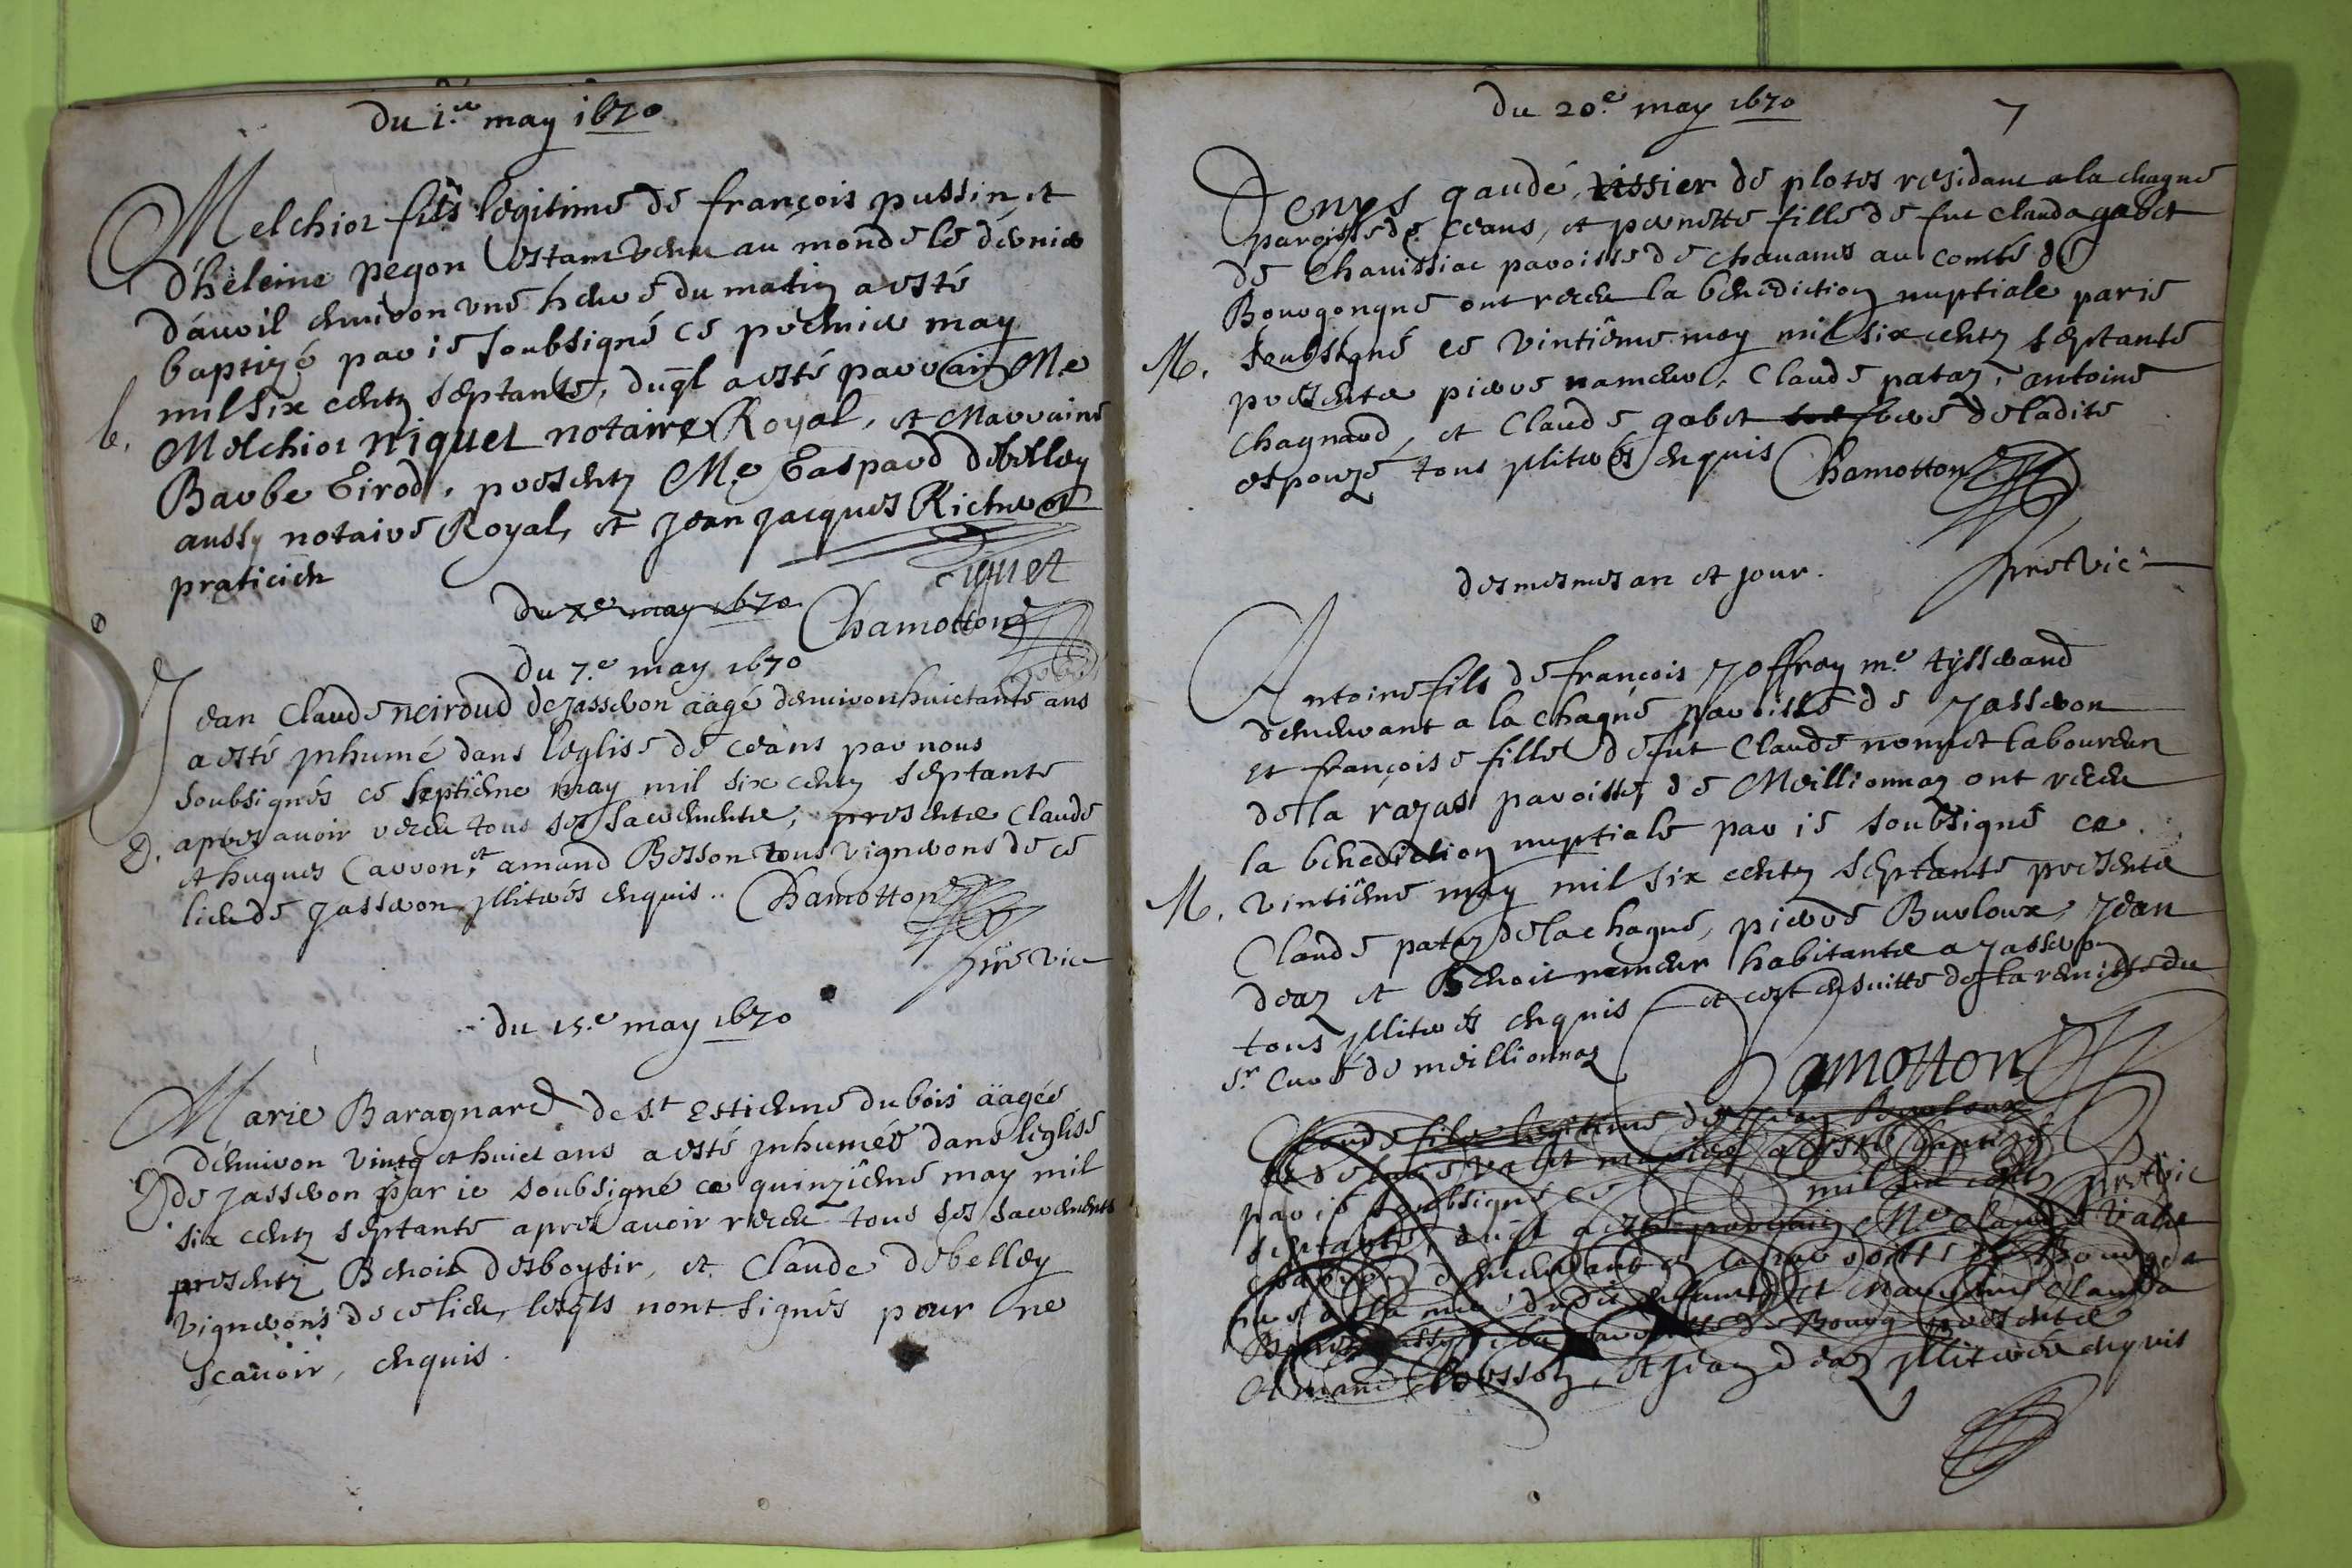 du 1.er may 1670
Melchior fils legitime de françois pussin, et
d'heleine pegon estant venu au monde le dernier
d'auril enuiron une heure du matin a esté
baptizé par ie soubsigné ce premier may
mil six centz septante, duql a esté parrain Me
b. Melchior niguet notaire Royal, et Marraine
Barbe Girod, presentz Me Gaspard debelley
aussy notaire Royal, et Jean Jacques Richerot
praticien
Niguet
du 7.e may 1670 Chamotton
du 7.e may 1670
Jean Claude neiroud de Jasseron aagé denuiron huictante ans
a esté inhumé dans leglise de ceans par nous
soubsignés ce septiême may mil six centz septante
D. apres auoir receu tous ses sacrements, presents Claude
et hugues Carron, et amand Besson tous vignerons de ce
lieu de Jasseron illiterés enquis.. Chamotton
pretre vic
du 15.e may 1670
Marie Baragnard de St Estienne du bois aagée
denuiron vingt et huict ans a esté inhumée dans leglise
D de Jasseron par ie soubsigné ce quinziême may mil
six centz septante apres auoir receu tous ses sacrements
presentz Benoit desboysir, et Claude debelley
vignerons de ce lieu, lesqls nont signés pour ne
scauoir, enquis.
du 20.e may 1670 7
Denys gaudé, tissier de plotes residant a la chagne
paroisse de ceans, et pernette fille de fut claude gabet
de Chauissiac paroisse de chauanes au comté de
Bourgongne ont receu la benediction nuptiale par ie
M. soubsigné ce vintiême may mil six centz septante
presents pierre nameur, Claude pataz, antoine
Chagnard, et Claude gabet frere de ladite
espouze tous illiterés enquis Chamotton
pretre vic
des mesmes an et jour.
Antoine fils de françois Joffray me tysserand
demeurant a la chagne paroisse de Jasseron
et françoise fille de fut Claude nonnet laboureur
de la rayas paroisse de Meillionnaz ont receu
la benediction nuptiale par ie soubsigné ce
M. vintiême may mil six centz septante presents
Claude pataz de la chagne, pierre Burloux, Jean
deaz et Benoit nameur habitants a Jasseron
tous illiterés enquis et cest ensuitte de la remisse du
sr Curé de meillionnaz
Chamotton
Claude fils legitime de Jean Burloux
a esté baptizé
par ie soubsigné ce mil six centz pretre vic
septante, duql a esté parrain Me claude
demeurant
et marraine Clauda
de Bourg presents
Amand Besson, et Jean deaz illiterés enquis